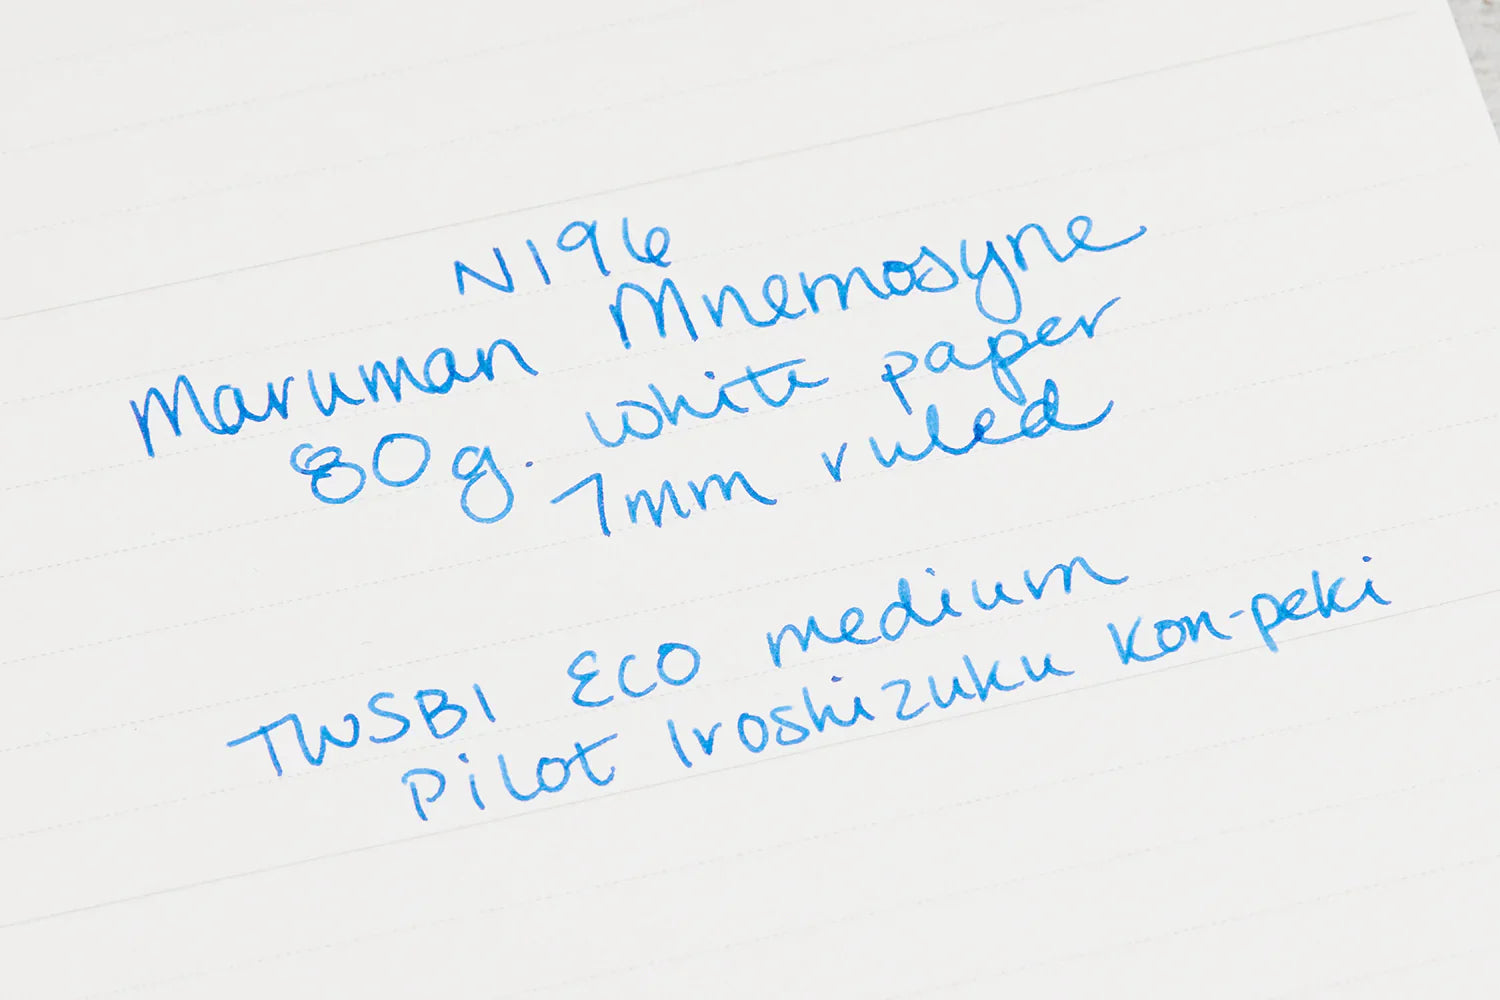 N196
Maruman Mnemosyne
80g. white paper
7mm ruled
TWSBI ECO medium
Pilot Iroshizuku Kon-peki